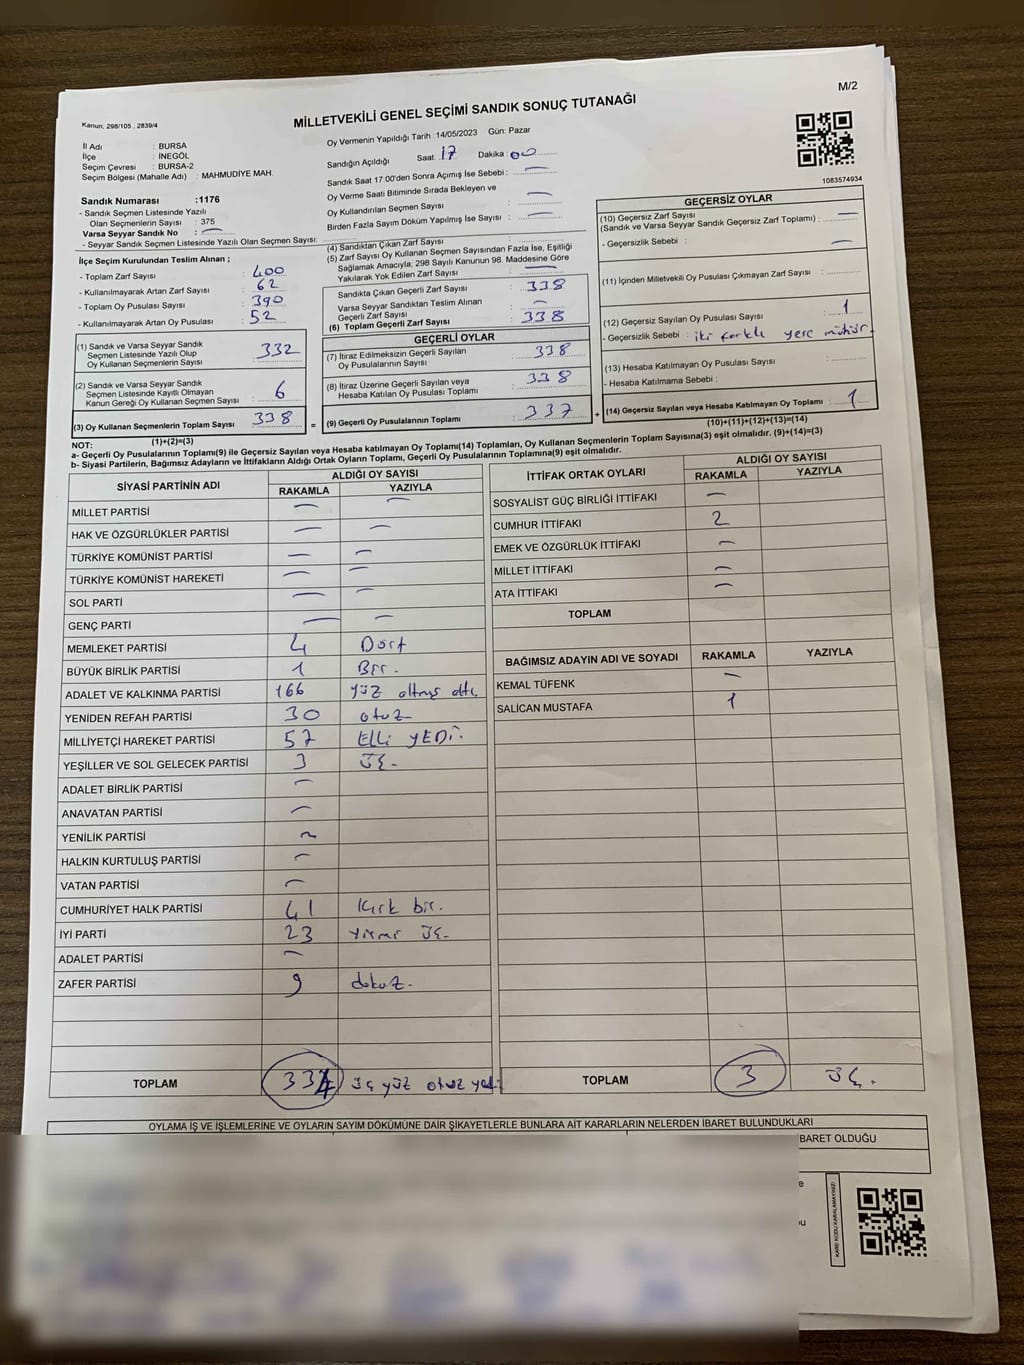 M/2
Kanun: 298/105 , 2839/4
MİLLETVEKİLİ GENEL SEÇİMİ SANDIK SONUÇ TUTANAĞI
İl Adı : BURSA
İlçe : İNEGÖL
Seçim Çevresi : BURSA-2
Seçim Bölgesi (Mahalle Adı) : MAHMUDİYE MAH.
Sandık Numarası :1176
- Sandık Seçmen Listesinde Yazılı
Olan Seçmenlerin Sayısı : 375
Varsa Seyyar Sandık No : —
- Seyyar Sandık Seçmen Listesinde Yazılı Olan Seçmen Sayısı:
Oy Vermenin Yapıldığı Tarih :14/05/2023 Gün: Pazar
Sandığın Açıldığı Saat: 17 Dakika : 00
Sandık Saat 17.00'den Sonra Açımış İse Sebebi : —
Oy Verme Saati Bitiminde Sırada Bekleyen ve
Oy Kullandırılan Seçmen Sayısı : —
Birden Fazla Sayım Döküm Yapılmış İse Sayısı : —
1083574934
İlçe Seçim Kurulundan Teslim Alınan ;
- Toplam Zarf Sayısı : 400
- Kullanılmayarak Artan Zarf Sayısı : 62
- Toplam Oy Pusulası Sayısı : 390
- Kullanılmayarak Artan Oy Pusulası : 52
(1) Sandık ve Varsa Seyyar Sandık
Seçmen Listesinde Yazılı Olup
Oy Kullanan Seçmenlerin Sayısı : 332
(2) Sandık ve Varsa Seyyar Sandık
Seçmen Listesinde Kayıtlı Olmayan
Kanun Gereği Oy Kullanan Seçmen Sayısı : 6
(3) Oy Kullanan Seçmenlerin Toplam Sayısı : 338
(1)+(2)=(3)
(4) Sandıktan Çıkan Zarf Sayısı :
(5) Zarf Sayısı Oy Kullanan Seçmen Sayısından Fazla İse, Eşitliği
Sağlamak Amacıyla, 298 Sayılı Kanunun 98. Maddesine Göre
Yakılarak Yok Edilen Zarf Sayısı : —
Sandıkta Çıkan Geçerli Zarf Sayısı : 338
Varsa Seyyar Sandıktan Teslim Alınan
Geçerli Zarf Sayısı : —
(6) Toplam Geçerli Zarf Sayısı : 338
GEÇERLİ OYLAR
(7) İtiraz Edilmeksizin Geçerli Sayılan
Oy Pusulalarının Sayısı : 338
(8) İtiraz Üzerine Geçerli Sayılan veya
Hesaba Katılan Oy Pusulası Toplamı : 338
= (9) Geçerli Oy Pusulalarının Toplamı : 337 +
GEÇERSİZ OYLAR
(10) Geçersiz Zarf Sayısı
(Sandık ve Varsa Seyyar Sandık Geçersiz Zarf Toplamı) : —
- Geçersizlik Sebebi : —
(11) İçinden Milletvekili Oy Pusulası Çıkmayan Zarf Sayısı :
(12) Geçersiz Sayılan Oy Pusulası Sayısı : 1
- Geçersizlik Sebebi : iki farklı yere mühür
(13) Hesaba Katılmayan Oy Pusulası Sayısı :
- Hesaba Katılmama Sebebi :
(14) Geçersiz Sayılan veya Hesaba Katılmayan Oy Toplamı : 1
(10)+(11)+(12)+(13)=(14)
NOT:
a- Geçerli Oy Pusulalarının Toplamı(9) ile Geçersiz Sayılan veya Hesaba katılmayan Oy Toplamı(14) Toplamları, Oy Kullanan Seçmenlerin Toplam Sayısına(3) eşit olmalıdır. (9)+(14)=(3)
b- Siyasi Partilerin, Bağımsız Adayların ve İttifakların Aldığı Ortak Oyların Toplamı, Geçerli Oy Pusulalarının Toplamına(9) eşit olmalıdır.
SİYASİ PARTİNİN ADI ALDIĞI OY SAYISI
RAKAMLA YAZIYLA
MİLLET PARTİSİ — —
HAK VE ÖZGÜRLÜKLER PARTİSİ — —
TÜRKİYE KOMÜNİST PARTİSİ — —
TÜRKİYE KOMÜNİST HAREKETİ — —
SOL PARTİ — —
GENÇ PARTİ — —
MEMLEKET PARTİSİ 4 Dört
BÜYÜK BİRLİK PARTİSİ 1 Bir.
ADALET VE KALKINMA PARTİSİ 166 yüz altmış altı
YENİDEN REFAH PARTİSİ 30 otuz
MİLLİYETÇİ HAREKET PARTİSİ 57 Elli YEDİ.
YEŞİLLER VE SOL GELECEK PARTİSİ 3 üç-
ADALET BİRLİK PARTİSİ —
ANAVATAN PARTİSİ —
YENİLİK PARTİSİ —
HALKIN KURTULUŞ PARTİSİ —
VATAN PARTİSİ —
CUMHURİYET HALK PARTİSİ 41 Kırk bir.
İYİ PARTİ 23 yirmi üç-
ADALET PARTİSİ —
ZAFER PARTİSİ 9 dokuz-
TOPLAM 334 üç yüz otuz yedi
İTTİFAK ORTAK OYLARI ALDIĞI OY SAYISI
RAKAMLA YAZIYLA
SOSYALİST GÜÇ BİRLİĞİ İTTİFAKI —
CUMHUR İTTİFAKI 2
EMEK VE ÖZGÜRLÜK İTTİFAKI —
MİLLET İTTİFAKI —
ATA İTTİFAKI —
TOPLAM
BAĞIMSIZ ADAYIN ADI VE SOYADI RAKAMLA YAZIYLA
KEMAL TÜFENK —
SALİCAN MUSTAFA 1
TOPLAM 3 üç.
OYLAMA İŞ VE İŞLEMLERİNE VE OYLARIN SAYIM DÖKÜMÜNE DAİR ŞİKAYETLERLE BUNLARA AİT KARARLARIN NELERDEN İBARET BULUNDUKLARI
BARET OLDUĞU
KARE KODU KARALAMAYINIZ!